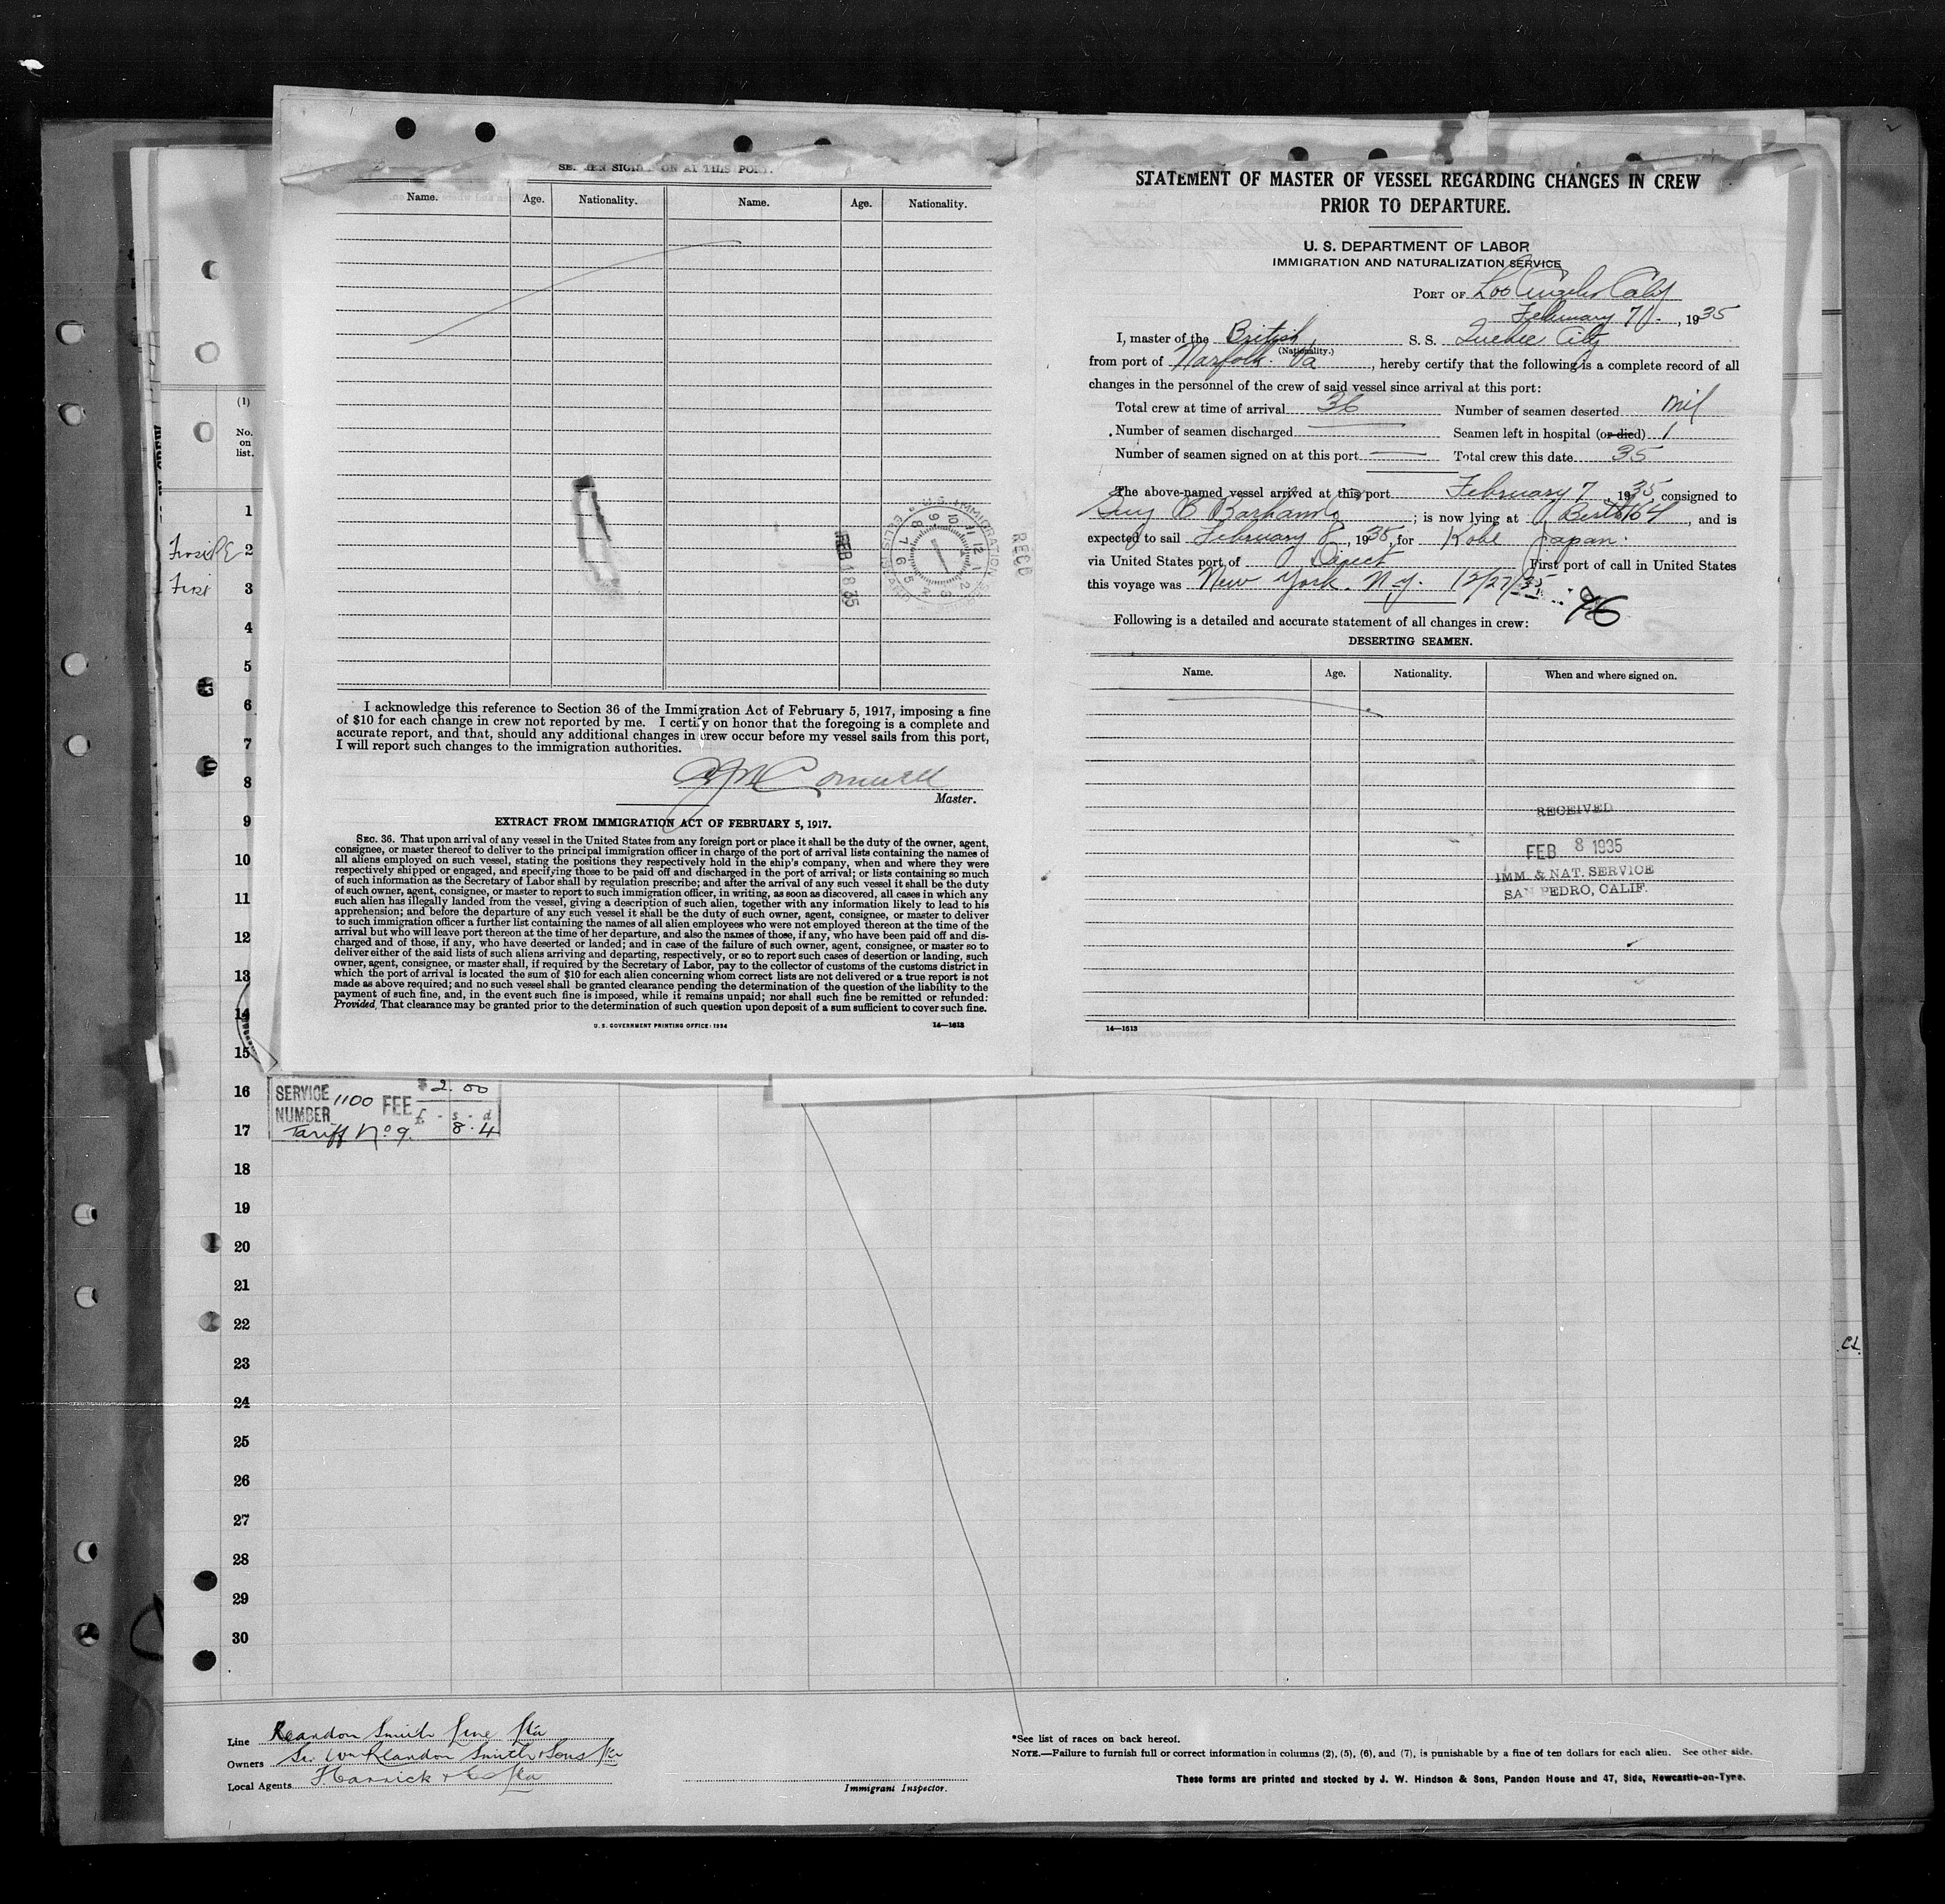 SEAMEN SIGNED ON AT THIS PORT.
Name. Age. Nationality. Name. Age. Nationality.
FEB 18 35
U.S. IMMIGRATION
ELLIS ISLAND
RECD
I acknowledge this reference to Section 36 of the Immigration Act of February 5, 1917, imposing a fine
of $10 for each change in crew not reported by me. I certify on honor that the foregoing is a complete and
accurate report, and that, should any additional changes in crew occur before my vessel sails from this port,
I will report such changes to the immigration authorities.
Master.
EXTRACT FROM IMMIGRATION ACT OF FEBRUARY 5, 1917.
SEC. 36. That upon arrival of any vessel in the United States from any foreign port or place it shall be the duty of the owner, agent,
consignee, or master thereof to deliver to the principal immigration officer in charge of the port of arrival lists containing the names of
all aliens employed on such vessel, stating the positions they respectively hold in the ship's company, when and where they were
respectively shipped or engaged, and specifying those to be paid off and discharged in the port of arrival; or lists containing so much
of such information as the Secretary of Labor shall by regulation prescribe; and after the arrival of any such vessel it shall be the duty
of such owner, agent, consignee, or master to report to such immigration officer, in writing, as soon as discovered, all cases in which any
such alien has illegally landed from the vessel, giving a description of such alien, together with any information likely to lead to his
apprehension; and before the departure of any such vessel it shall be the duty of such owner, agent, consignee, or master to deliver
to such immigration officer a further list containing the names of all alien employees who were not employed thereon at the time of the
arrival but who will leave port thereon at the time of her departure, and also the names of those, if any, who have been paid off and dis-
charged and of those, if any, who have deserted or landed; and in case of the failure of such owner, agent, consignee, or master so to
deliver either of the said lists of such aliens arriving and departing, respectively, or so to report such cases of desertion or landing, such
owner, agent, consignee, or master shall, if required by the Secretary of Labor, pay to the collector of customs of the customs district in
which the port of arrival is located the sum of $10 for each alien concerning whom correct lists are not delivered or a true report is not
made as above required; and no such vessel shall be granted clearance pending the determination of the question of the liability to the
payment of such fine, and, in the event such fine is imposed, while it remains unpaid; nor shall such fine be remitted or refunded:
Provided, That clearance may be granted prior to the determination of such question upon deposit of a sum sufficient to cover such fine.
U. S. GOVERNMENT PRINTING OFFICE: 1934 14—1613
STATEMENT OF MASTER OF VESSEL REGARDING CHANGES IN CREW
PRIOR TO DEPARTURE.
U. S. DEPARTMENT OF LABOR
IMMIGRATION AND NATURALIZATION SERVICE
PORT OF Los Angeles Calif
February 7, 1935
I, master of the British S. S. Quebec City
(Nationality.)
from port of Norfolk Va, hereby certify that the following is a complete record of all
changes in the personnel of the crew of said vessel since arrival at this port:
Total crew at time of arrival 36 Number of seamen deserted Nil
Number of seamen discharged — Seamen left in hospital (or died) 1
Number of seamen signed on at this port — Total crew this date 35
The above-named vessel arrived at this port February 7, 1935, consigned to
Guy B Barham; is now lying at Berth 64, and is
expected to sail February 8, 1935, for Kobe Japan.
via United States port of Direct First port of call in United States
this voyage was New York. N.Y. 12/27/35
Following is a detailed and accurate statement of all changes in crew:
DESERTING SEAMEN.
Name. Age. Nationality. When and where signed on.
RECEIVED
FEB 8 1935
IMM. & NAT. SERVICE
SAN PEDRO, CALIF.
14—1613
(1)
No.
on
list.
1
2
First 3
4
5
6
7
8
9
10
11
12
13
14
15
16
17
18
19
20
21
22
23
24
25
26
27
28
29
30
SERVICE
NUMBER 1100 FEE $2.00
£ - s - d
Tariff No 9. 8.4
CL
Line Reardon Smith Line Ltd
Owners Sir Wm Reardon Smith & Sons Ltd
Local Agents
Immigrant Inspector.
*See list of races on back hereof.
NOTE.—Failure to furnish full or correct information in columns (2), (5), (6), and (7), is punishable by a fine of ten dollars for each alien. See other side.
These forms are printed and stocked by J. W. Hindson & Sons, Pandon House and 47, Side, Newcastle-on-Tyne.